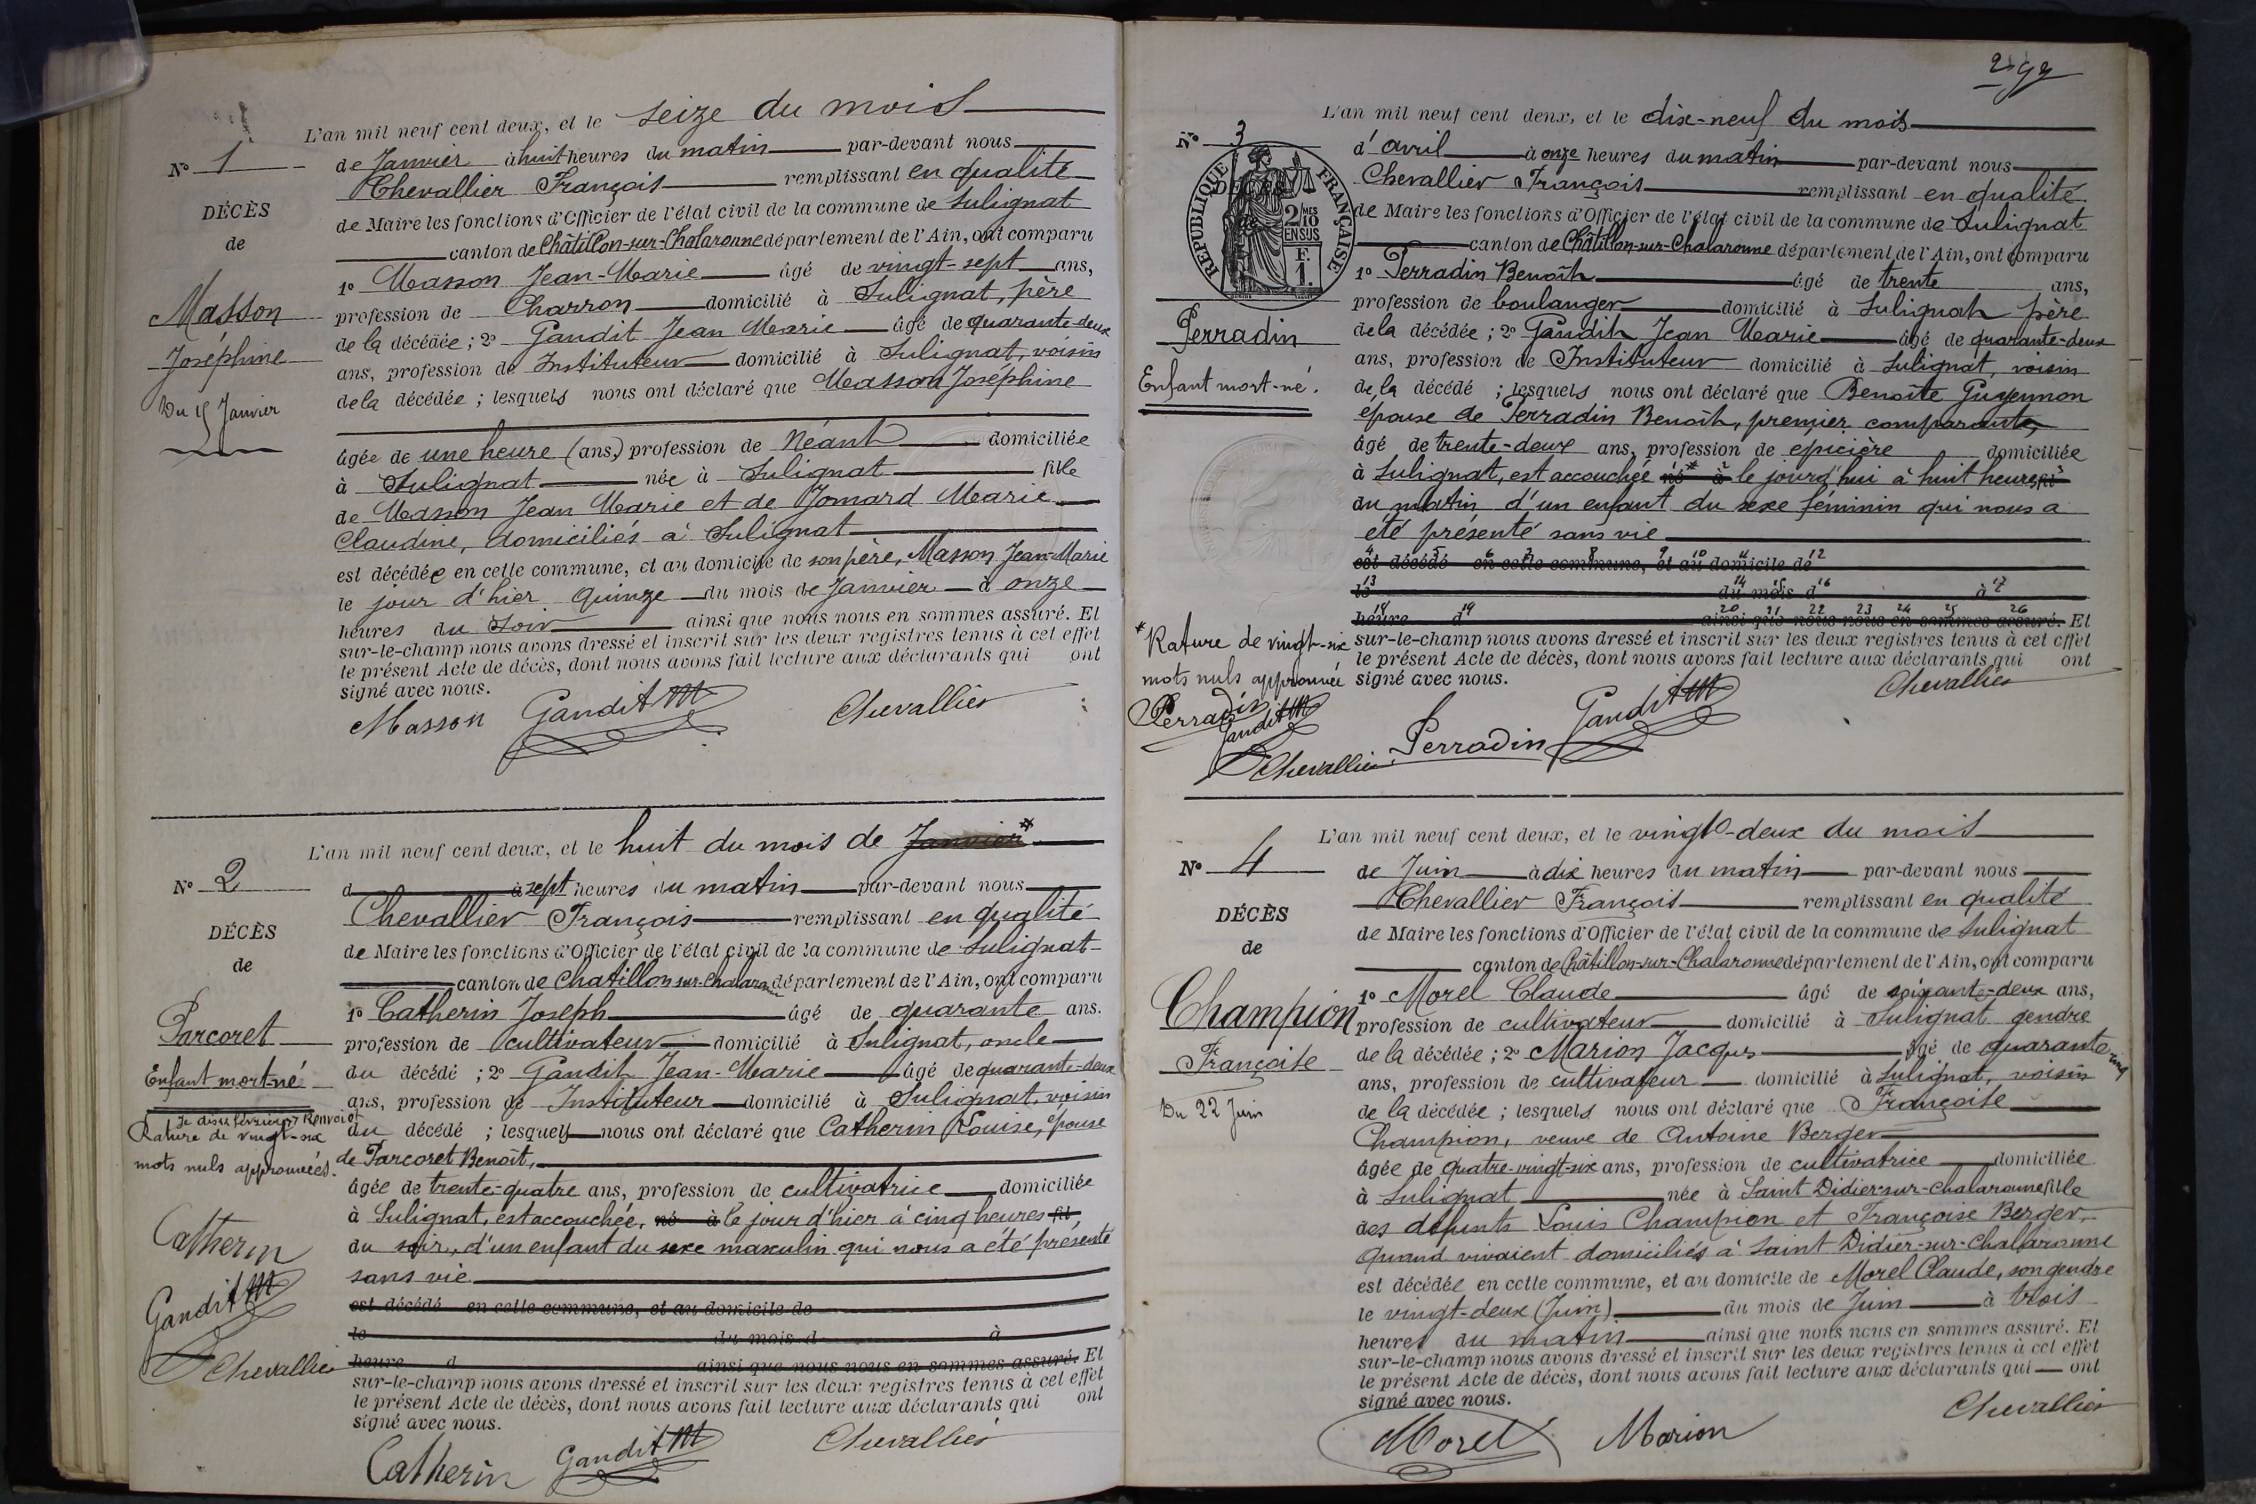 L'an mil neuf cent deux, et le seize du mois
N° 1
de Janvier à huit heures du matin par-devant nous
Chevallier François remplissant en qualité
DÉCÈS
de Maire les fonctions d'Officier de l'état civil de la commune de Sulignat
de
canton de Châtillon-sur-Chalaronne département de l'Ain, ont comparu
1° Masson Jean-Marie âgé de vingt-sept ans,
Masson
profession de Charron domicilié à Sulignat, père
Joséphine
de la décédée ; 2° Gandit Jean Marie âgé de quarante-deux
ans, profession de Instituteur domicilié à Sulignat, voisin
Du 15 Janvier
de la décédée ; lesquels nous ont déclaré que Masson Joséphine
âgée de une heure (ans,) profession de Néant domiciliée
à Sulignat née à Sulignat fille
de Masson Jean Marie et de Jomard Marie
Claudine, domiciliés à Sulignat
est décédée en cette commune, et au domicile de son père, Masson Jean-Marie
le jour d'hier quinze du mois de Janvier à onze
heures du soir ainsi que nous nous en sommes assuré. Et
sur-le-champ nous avons dressé et inscrit sur les deux registres tenus à cet effet
le présent Acte de décès, dont nous avons fait lecture aux déclarants qui ont
signé avec nous.
Masson Gandit JM Chevallier
L'an mil neuf cent deux, et le huit du mois de Janvier*
N° 2
d à sept heures du matin par-devant nous
Chevallier François remplissant en qualité
DÉCÈS
de Maire les fonctions d'Officier de l'état civil de la commune de Sulignat
de
canton de Chatillon sur-Chalaronne département de l'Ain, ont comparu
1° Catherin Joseph âgé de quarante ans.
Parcoret
profession de cultivateur domicilié à Sulignat, oncle
Enfant mort-né
du décédé ; 2° Gandit Jean-Marie âgé de quarante-deux
ans, profession de Instituteur domicilié à Sulignat, voisin
Renvoi et
Rature de vingt-six
mots nuls approuvées.
du décédé ; lesquels nous ont déclaré que Catherin Louise, épouse
de Parcoret Benoît,
âgée de trente-quatre ans, profession de cultivatrice domiciliée
à Sulignat, est accouchée, né à le jour d'hier à cinq heures fil
du soir, d'un enfant du sexe masculin qui nous a été présenté
sans vie
est décédé en cette commune, et au domicile de
le du mois d à
heure d ainsi que nous nous en sommes assuré. Et
sur-le-champ nous avons dressé et inscrit sur les deux registres tenus à cet effet
le présent Acte de décès, dont nous avons fait lecture aux déclarants qui ont
signé avec nous.
Catherin
Gandit JM
Chevallier
Catherin Gandit JM Chevallier
L'an mil neuf cent deux, et le dix-neuf du mois
N° 3
d'avril à onze heures du matin par-devant nous
Chevallier François remplissant en qualité
DÉCÈS
RÉPUBLIQUE FRANÇAISE
2/10 MES
EN SUS
F.
1.
de Maire les fonctions d'Officier de l'état civil de la commune de Sulignat
canton de Châtillon-sur-Chalaronne département de l'Ain, ont comparu
1° Perradin Benoît âgé de trente ans,
profession de boulanger domicilié à Sulignat père
Perradin
de la décédée ; 2° Gandit Jean Marie âgé de quarante-deux
ans, profession de Instituteur domicilié à Sulignat, voisin
Enfant mort-né.
de la décédé ; lesquels nous ont déclaré que Benoîte Guyennon
épouse de Perradin Benoît, premier comparant,
âgé de trente-deux ans, profession de epicière domiciliée
à Sulignat, est accouchée né* à le jourd'hui à huit heures fil
du matin d'un enfant du sexe féminin qui nous a
été présenté sans vie
4 5 6 7 8 9 10 11 12
est décédé en cette commune, et au domicile de
13 14 15 16 17
le du mois d à
18 19 20 21 22 23 24 25 26
heure d ainsi que nous nous en sommes assuré. Et
sur-le-champ nous avons dressé et inscrit sur les deux registres tenus à cet effet
le présent Acte de décès, dont nous avons fait lecture aux déclarants qui ont
signé avec nous.
* Rature de vingt-six
mots nuls approuvée
Perradin
Gandit JM
Chevallier
Perradin Gandit JM Chevallier
L'an mil neuf cent deux, et le vingt-deux du mois
N° 4
de Juin à dix heures du matin par-devant nous
Chevallier François remplissant en qualité
DÉCÈS
de Maire les fonctions d'Officier de l'état civil de la commune de Sulignat
de
canton de Châtillon-sur-Chalaronne département de l'Ain, ont comparu
1° Morel Claude âgé de soixante-deux ans,
Champion
profession de cultivateur domicilié à Sulignat gendre
Françoise
de la décédée ; 2° Marion Jacques âgé de quarante-cinq
ans, profession de cultivateur domicilié à Sulignat, voisin
Du 22 Juin
de la décédée ; lesquels nous ont déclaré que Françoise
Champion, veuve de Antoine Berger
âgée de quatre-vingt-six ans, profession de cultivatrice domiciliée
à Sulignat née à Saint Didier-sur-Chalaronne fille
des défunts Louis Champion et Françoise Berger,
quand vivaient domiciliés à Saint Didier-sur-Chalaronne
est décédée en cette commune, et au domicile de Morel Claude, son gendre
le vingt-deux (Juin) du mois de Juin à trois
heures du matin ainsi que nous nous en sommes assuré. Et
sur-le-champ nous avons dressé et inscrit sur les deux registres tenus à cet effet
le présent Acte de décès, dont nous avons fait lecture aux déclarants qui ont
signé avec nous.
Morel Marion Chevallier